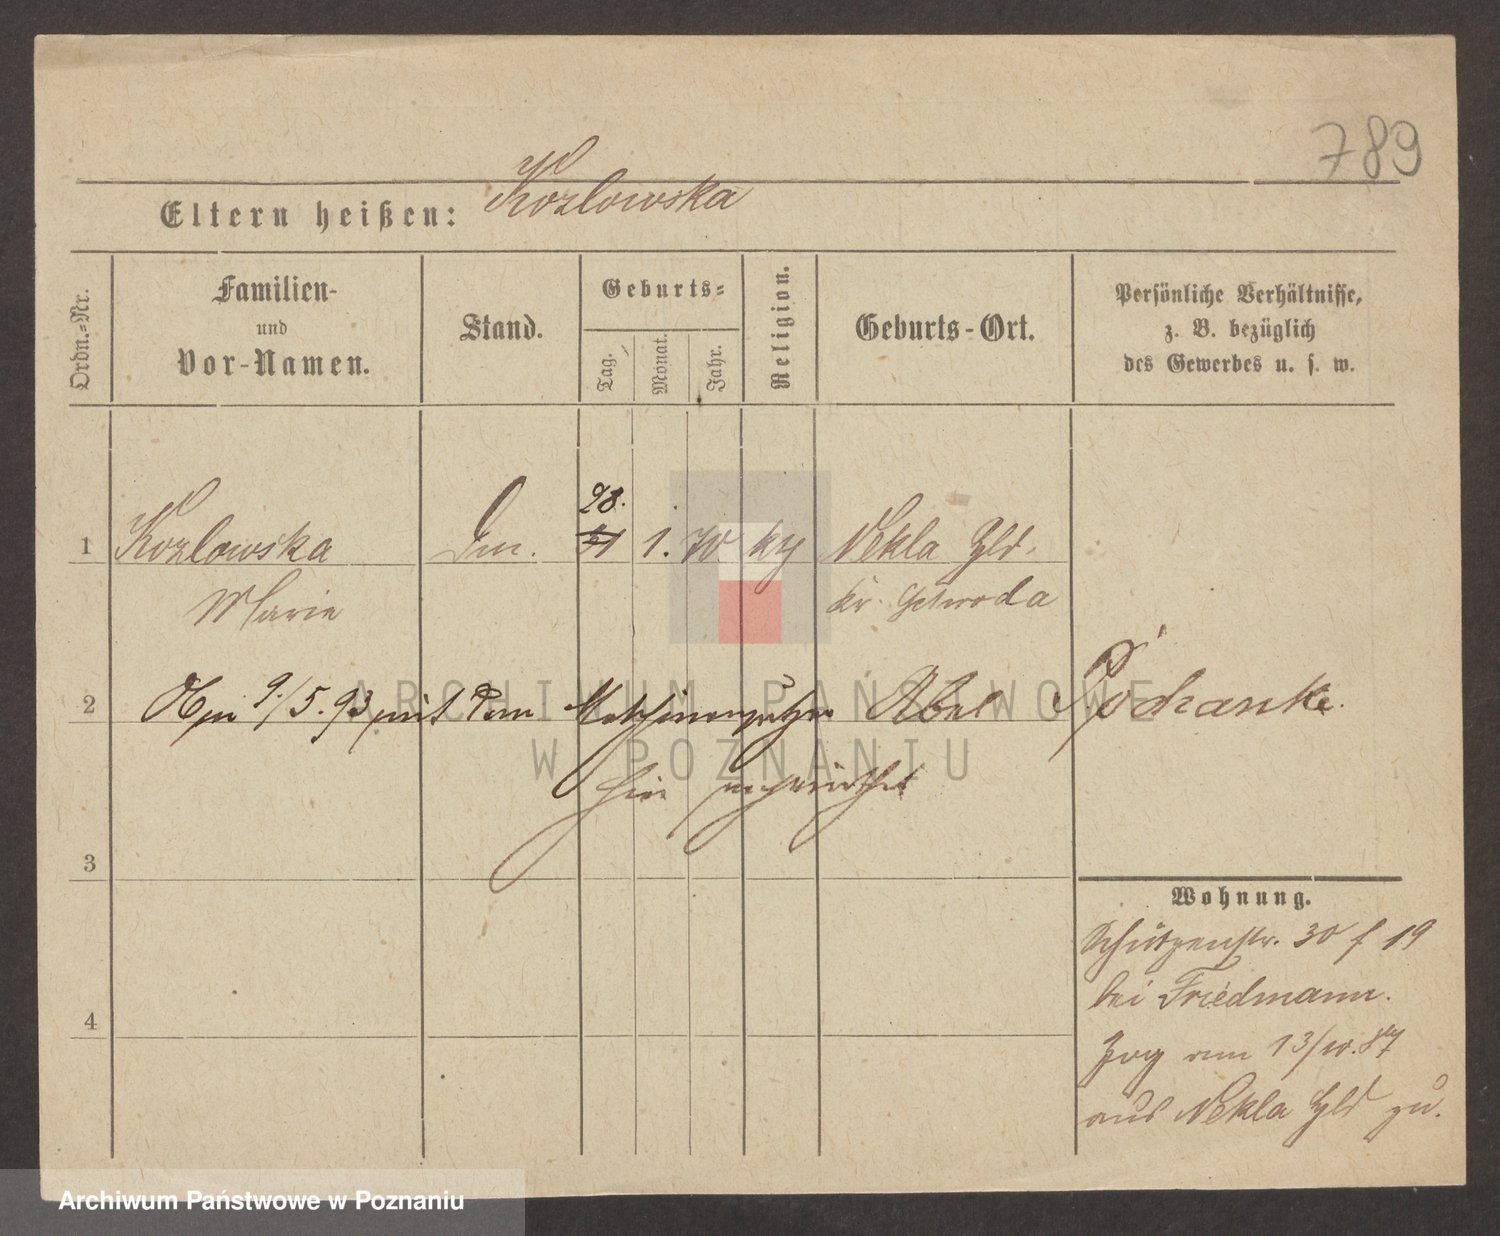 789
Kozlowska
Eltern heißen:
Ordn.=Nr.
Familien-
und
Vor-Namen.
Stand.
Geburts=
Tag.
Monat.
Jahr.
Religion.
Geburts-Ort.
Persönliche Verhältnisse,
z. B. bezüglich
des Gewerbes u. s. w.
28.
1 Kozlowska 1. 70 kg Nekla Hld.
Marie Kr. Schroda
2 9./5. 93 mit dem Maschinenputzer Abel Pochanke.
hier verheirathet
3
Wohnung.
Schützenstr. 30 f 19
bei Friedmann.
4
Zog am 13/10. 87
aus Nekla Hld zu.
ARCHIWUM PAŃSTWOWE
W POZNANIU
Archiwum Państwowe w Poznaniu